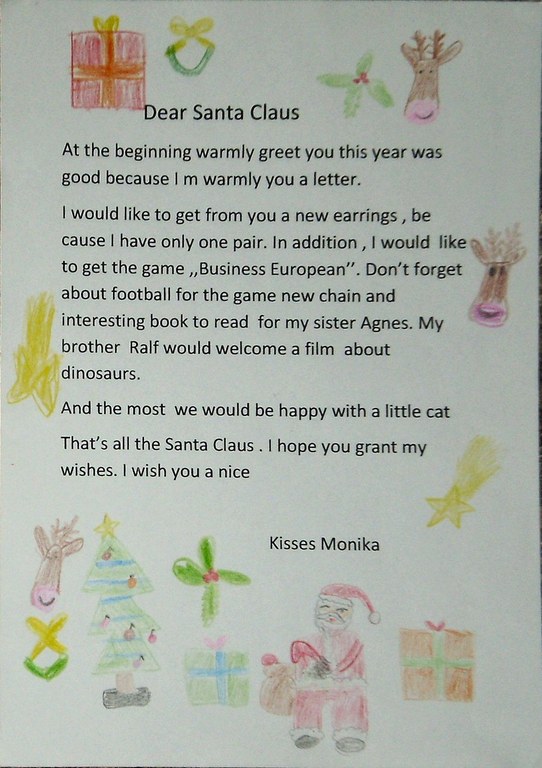 Dear Santa Claus
At the beginning warmly greet you this year was
good because I m warmly you a letter.
I would like to get from you a new earrings , be
cause I have only one pair. In addition , I would  like
to get the game ,,Business European”. Don’t forget
about football for the game new chain and
interesting book to read  for my sister Agnes. My
brother  Ralf would welcome a film  about
dinosaurs.
And the most  we would be happy with a little cat
That’s all the Santa Claus . I hope you grant my
wishes. I wish you a nice
Kisses Monika